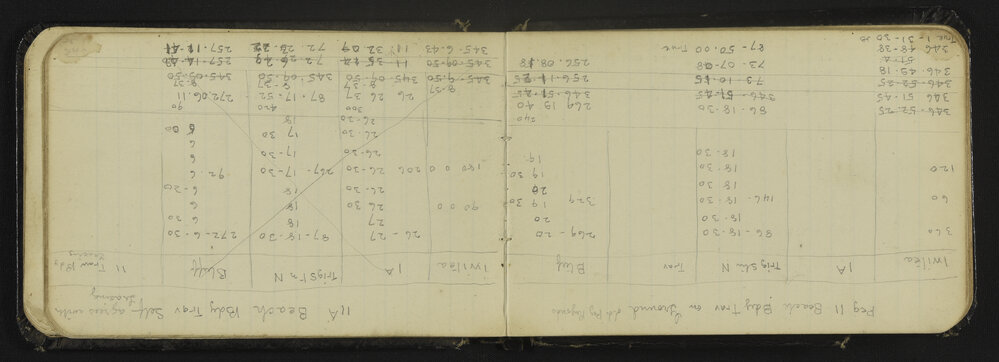 Peg 11 Beach Bdy Trav on Ground old Peg
Iwilea 1A Trig Stn N Trav Bluff
360 86-18-30 269-20
18-30 20
60 146-18-30 329 19 30
18 30 20
120 18-30 19 30
18.30 19.
240
346-52-25 86-18-30 269 19 40
346 51-45 346-51-45 346.51-25
346-52-25 73-10-15 256-11-25
346 49.18 73-07-08 256.08.18
346 48-38 87-50.00 True
True 1-31-30
11A Beach Bdy Trav Self agrees with tracing
Iwilea 1A Trig Stn N Bluff 11 Trav Bdy tracing
26-27 87-18-30 272-6-30
27 18 6 30
90 0 0 26 30 18 6
26-30 18 6-30
180 0 0 206 26-30 267-17-30 92 6
26-30 17-30 6
26-30 17 30 6 00
26-20 18
300 420 90
8-37 26 26 37 87-17-52 272.06.11
8-37 8-37 8-37
345-9-50 345-09-50 345-09-50 345-09-50
345-09-50 11 35 14 72-26-29 257-14-48
345.6.43 11 32 07 72.23.22 257-11-41